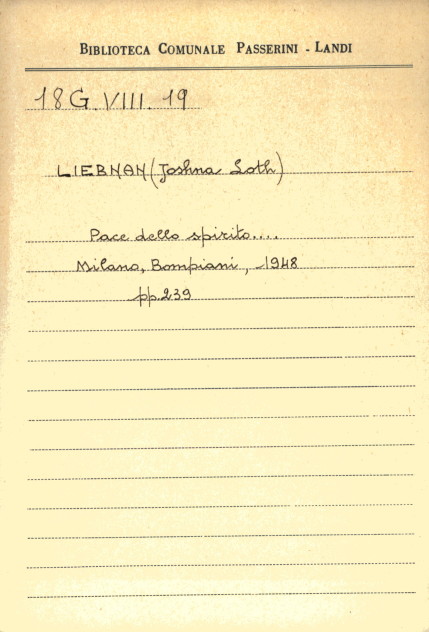 BIBLIOTECA COMUNALE PASSERINI - LANDI
18G.VIII.19
LIEBMAN (Joshna Loth)
Pace dello spirito....
Milano, Bompiani, 1948
pp.239